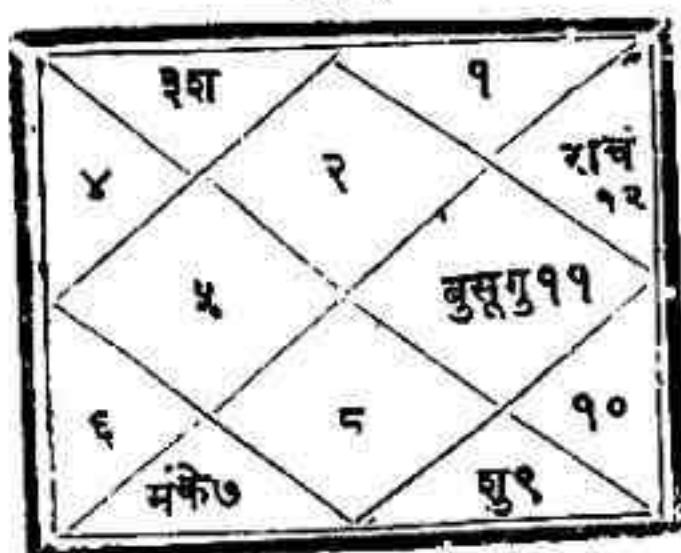 ३श
१
४
२
राचं
१२
५
बुसूगु११
६
८
१०
मंके७
शु९